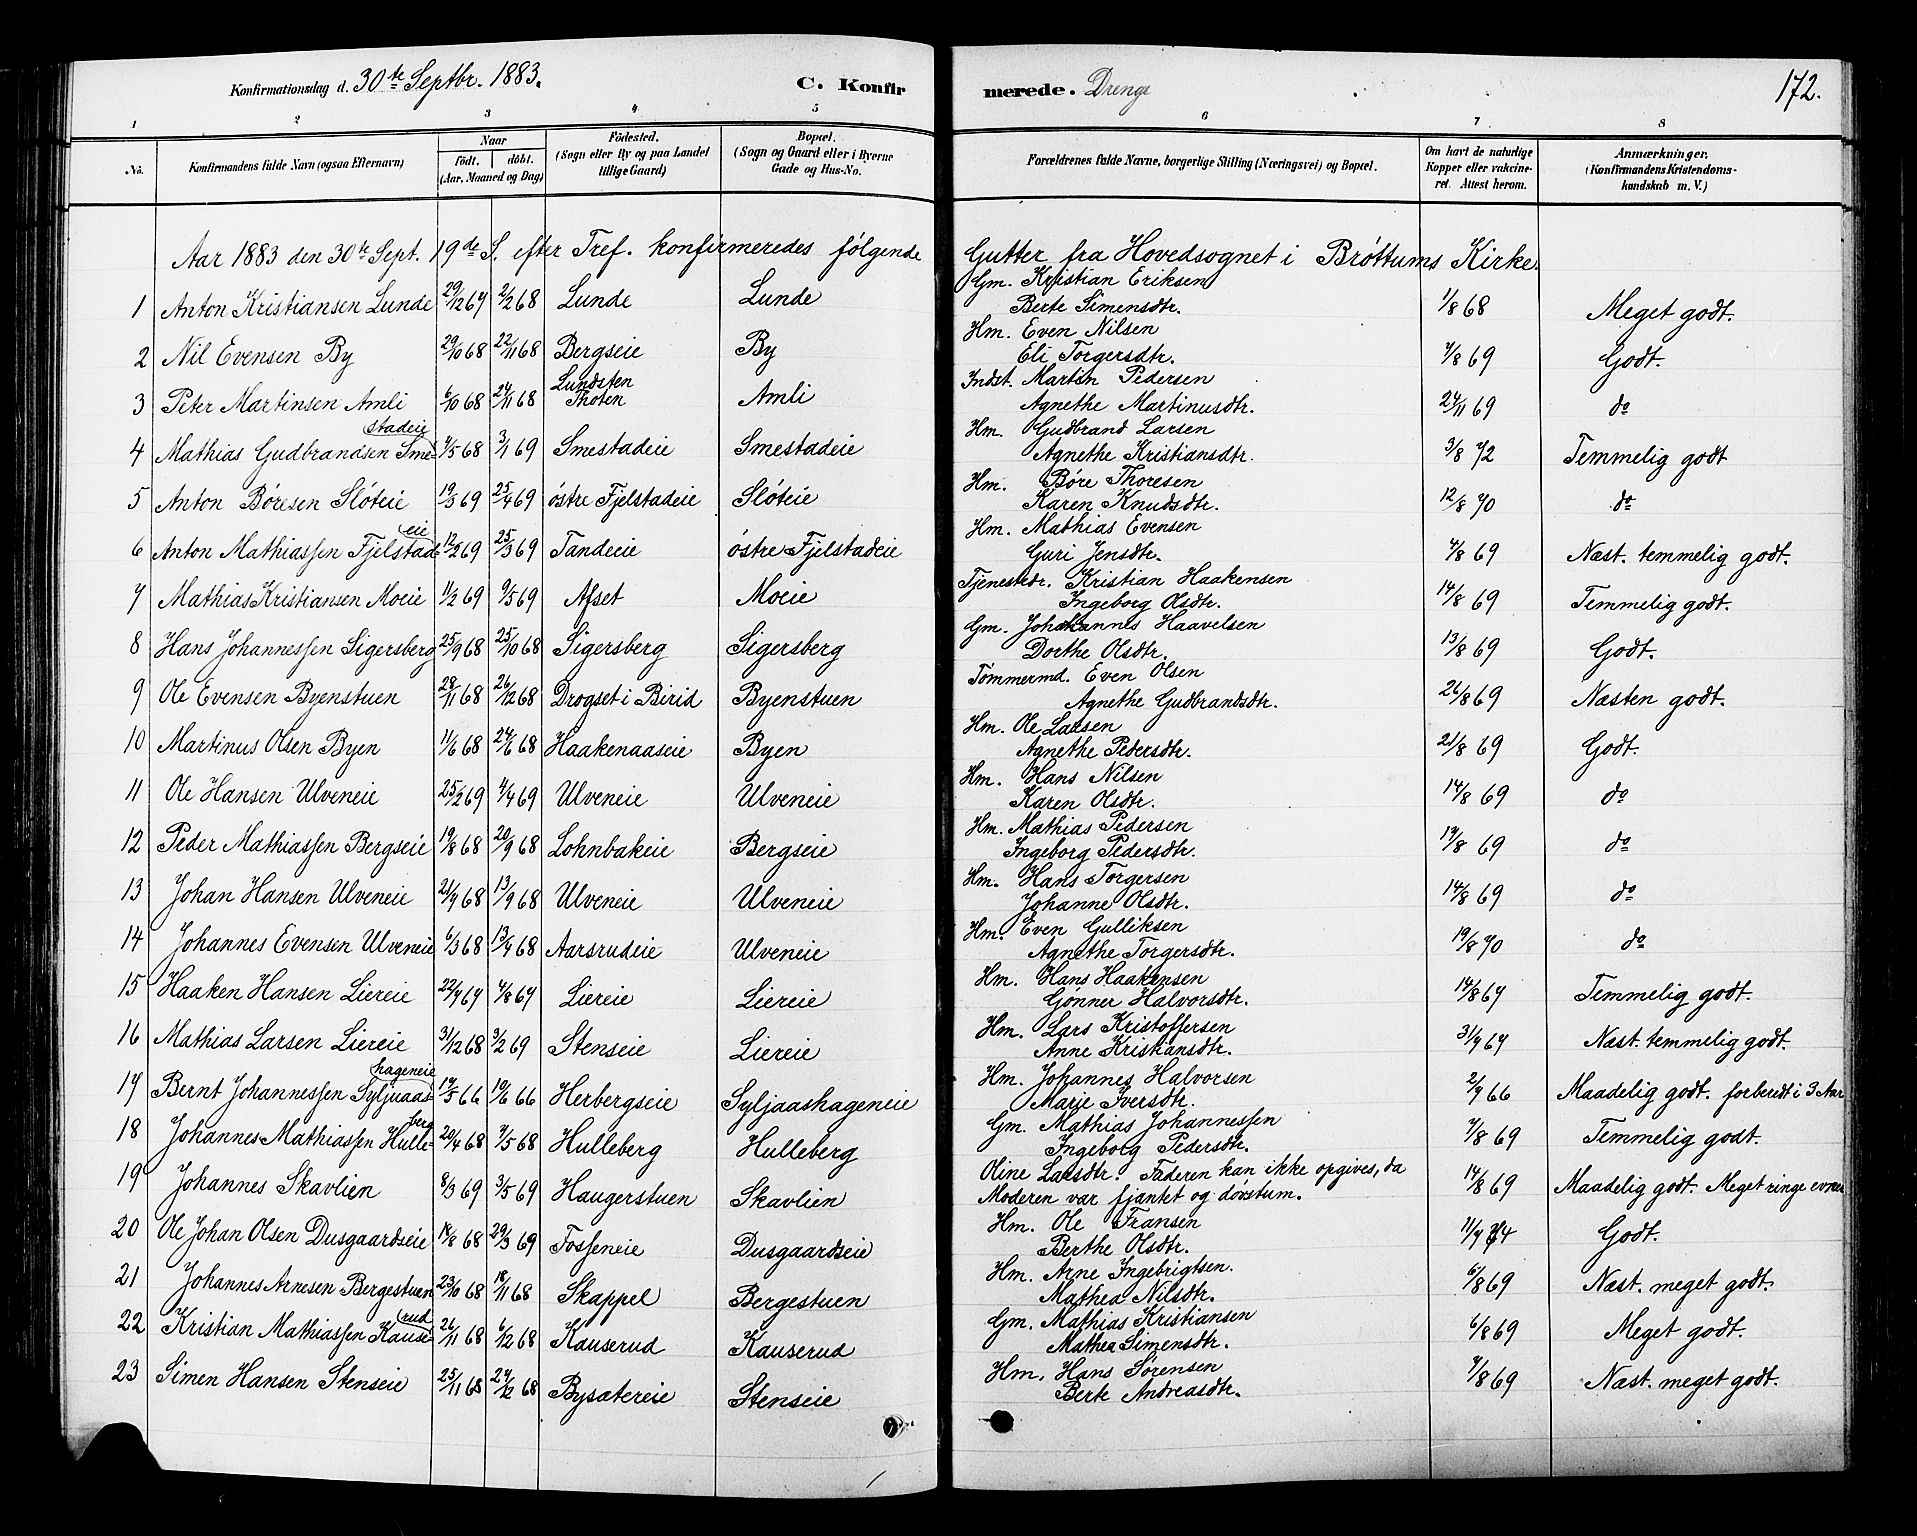 Konfirmationsdag d. 30te Septbr. 1883. C. Konfirmerede. Drenge 172.
1 2 3 4 5 6 7 8
No. Konfirmandens fulde Navn (ogsaa Efternavn) Naar født. døbt. (Aar, Maaned og Dag) Fødested. (Sogn eller By og paa Landet tillige Gaard) Bopæl. (Sogn og Gaard eller i Byerne Gade og Hus-No. Forældrenes fulde Navne, borgerlige Stilling (Næringsvei) og Bopæl. Om havt de naturlige Kopper eller vakcineret. Attest herom. Anmærkninger. (Konfirmandens Kristendomskundskab m. V.)
Aar 1883 den 30te Sept. 19de S. efter Tref. konfirmeredes følgende Gutter fra Hovedsognet i Brøttums Kirke.
1 Anton Kristiansen Lunde 29/12 67 2/2 68 Lunde Lunde Gm. Kristian Eriksen Berte Simensdtr. 1/8 68 Meget godt.
2 Nil Evensen By 29/10 68 22/11 68 Bergseie By Hm. Even Nilsen Eli Torgersdtr. 7/8 69 Godt.
3 Peter Martinsen Amli 6/10 68 24/11 68 Lundsten Thoten Amli Indst. Martin Pedersen Agnethe Martinusdtr. 24/11 69 do
4 Mathias Gudbrandsen Smestadeie 7/5 68 3/1 69 Smestadeie Smestadeie Hm. Gudbrand Larsen Agnethe Kristiansdtr. 3/8 72 Temmelig godt
5 Anton Børesen Slóteie 19/3 69 25/4 69 østre Fjelstadeie Slóteie Hm. Børe Thoresen Karen Knudsdtr. 12/8 70 do
6 Anton Mathiassen Fjelstadeie 12/2 69 25/3 69 Tandeie østre Fjelstadeie Hm. Mathias Evensen Guri Jensdtr. 4/8 69 Næst. temmelig godt.
7 Mathias Kristiansen Moeie 11/2 69 9/5 69 Afset Moeie Tjenestedr. Kristian Haakensen Ingeborg Olsdtr. 14/8 69 Temmelig godt.
8 Hans Johannessen Sigersberg 25/9 68 25/10 68 Sigersberg Sigersberg Gm. Johannes Haavelsen Dorthe Olsdtr. 13/8 69 Godt.
9 Ole Evensen Byenstuen 28/11 68 26/12 68 Drogset i Birid Byenstuen Tømmermd. Even Olsen Agnethe Gudbrandsdtr. 26/8 69 Næsten godt.
10 Martinus Olsen Byen 11/6 68 24/6 68 Haakenaaseie Byen Hm. Ole Larsen Agnethe Pedersdtr. 21/8 69 Godt.
11 Ole Hansen Ulveneie 25/2 69 4/4 69 Ulveneie Ulveneie Hm. Hans Nilsen Karen Olsdtr. 14/8 69 do
12 Peder Mathiassen Bergseie 19/8 68 20/9 68 Lohnbakeie Bergseie Hm. Mathias Pedersen Ingeborg Pedersdtr. 17/8 69 do
13 Johan Hansen Ulveneie 21/7 68 13/9 68 Ulveneie Ulveneie Hm. Hans Torgersen Johanne Olsdtr. 14/8 69 do
14 Johannes Evensen Ulveneie 6/3 68 13/4 68 Aarsrudeie Ulveneie Hm. Even Gulliksen Agnethe Torgersdtr. 19/8 70 do
15 Haaken Hansen Liereie 22/7 67 4/8 67 Liereie Liereie Hm. Hans Haakensen Gønner Halvorsdtr. 14/8 67 Temmelig godt.
16 Mathias Larsen Liereie 31/12 68 3/2 69 Stenseie Liereie Hm. Lars Kristoffersen Anne Kristiansdtr. 31/7 67 Næst. temmelig godt.
17 Bernt Johannessen Syljuaashageneie 17/5 66 10/6 66 Herbergseie Syljaashageneie Hm. Johannes Halvorsen Marie Iversdtr. 2/7 66 Maadelig godt. forberedt i 3 Aar
18 Johannes Mathiassen Hulleberg 20/4 68 7/5 68 Hulleberg Hulleberg Gm. Mathias Johannessen Ingeborg Pedersdtr. 7/8 69 Temmelig godt.
19 Johannes Skavlien 8/3 69 3/5 69 Haugerstuen Skavlien Oline Larsdtr. Faderen kan ikke opgives, da Moderen var fjantet og døvstum. 14/8 69 Maadelig godt. Meget ringe evner
20 Ole Johan Olsen Dusgaardseie 14/8 68 29/3 69 Fosseneie Dusgaardseie Hm. Ole Fransen Berthe Olsdtr. 11/7 74 Godt.
21 Johannes Arnesen Bergestuen 23/10 68 18/11 68 Skappel Bergestuen Hm. Arne Ingebrigtsen. Mathea Nilsdtr. 6/8 69 Næst. meget godt.
22 Kristian Mathiassen Kauserud 26/11 68 6/12 68 Kauserud Kauserud Gm. Mathias Kristiansen Mathea Simensdtr. 6/8 69 Meget godt.
23 Simen Hansen Stenseie 25/11 68 27/12 68 Bysætereie Stenseie Hm. Hans Sørensen Berte Andreasdtr. 7/8 69 Næst. meget godt.